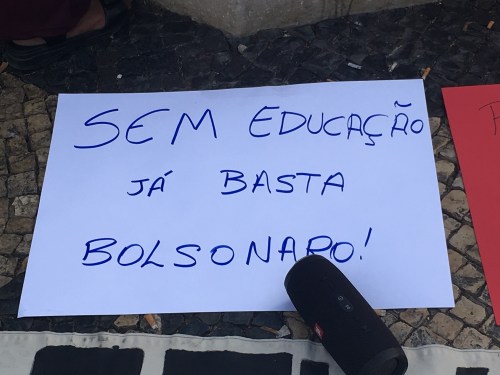 SEM EDUCAÇÃO
JÁ BASTA
BOLSONARO!